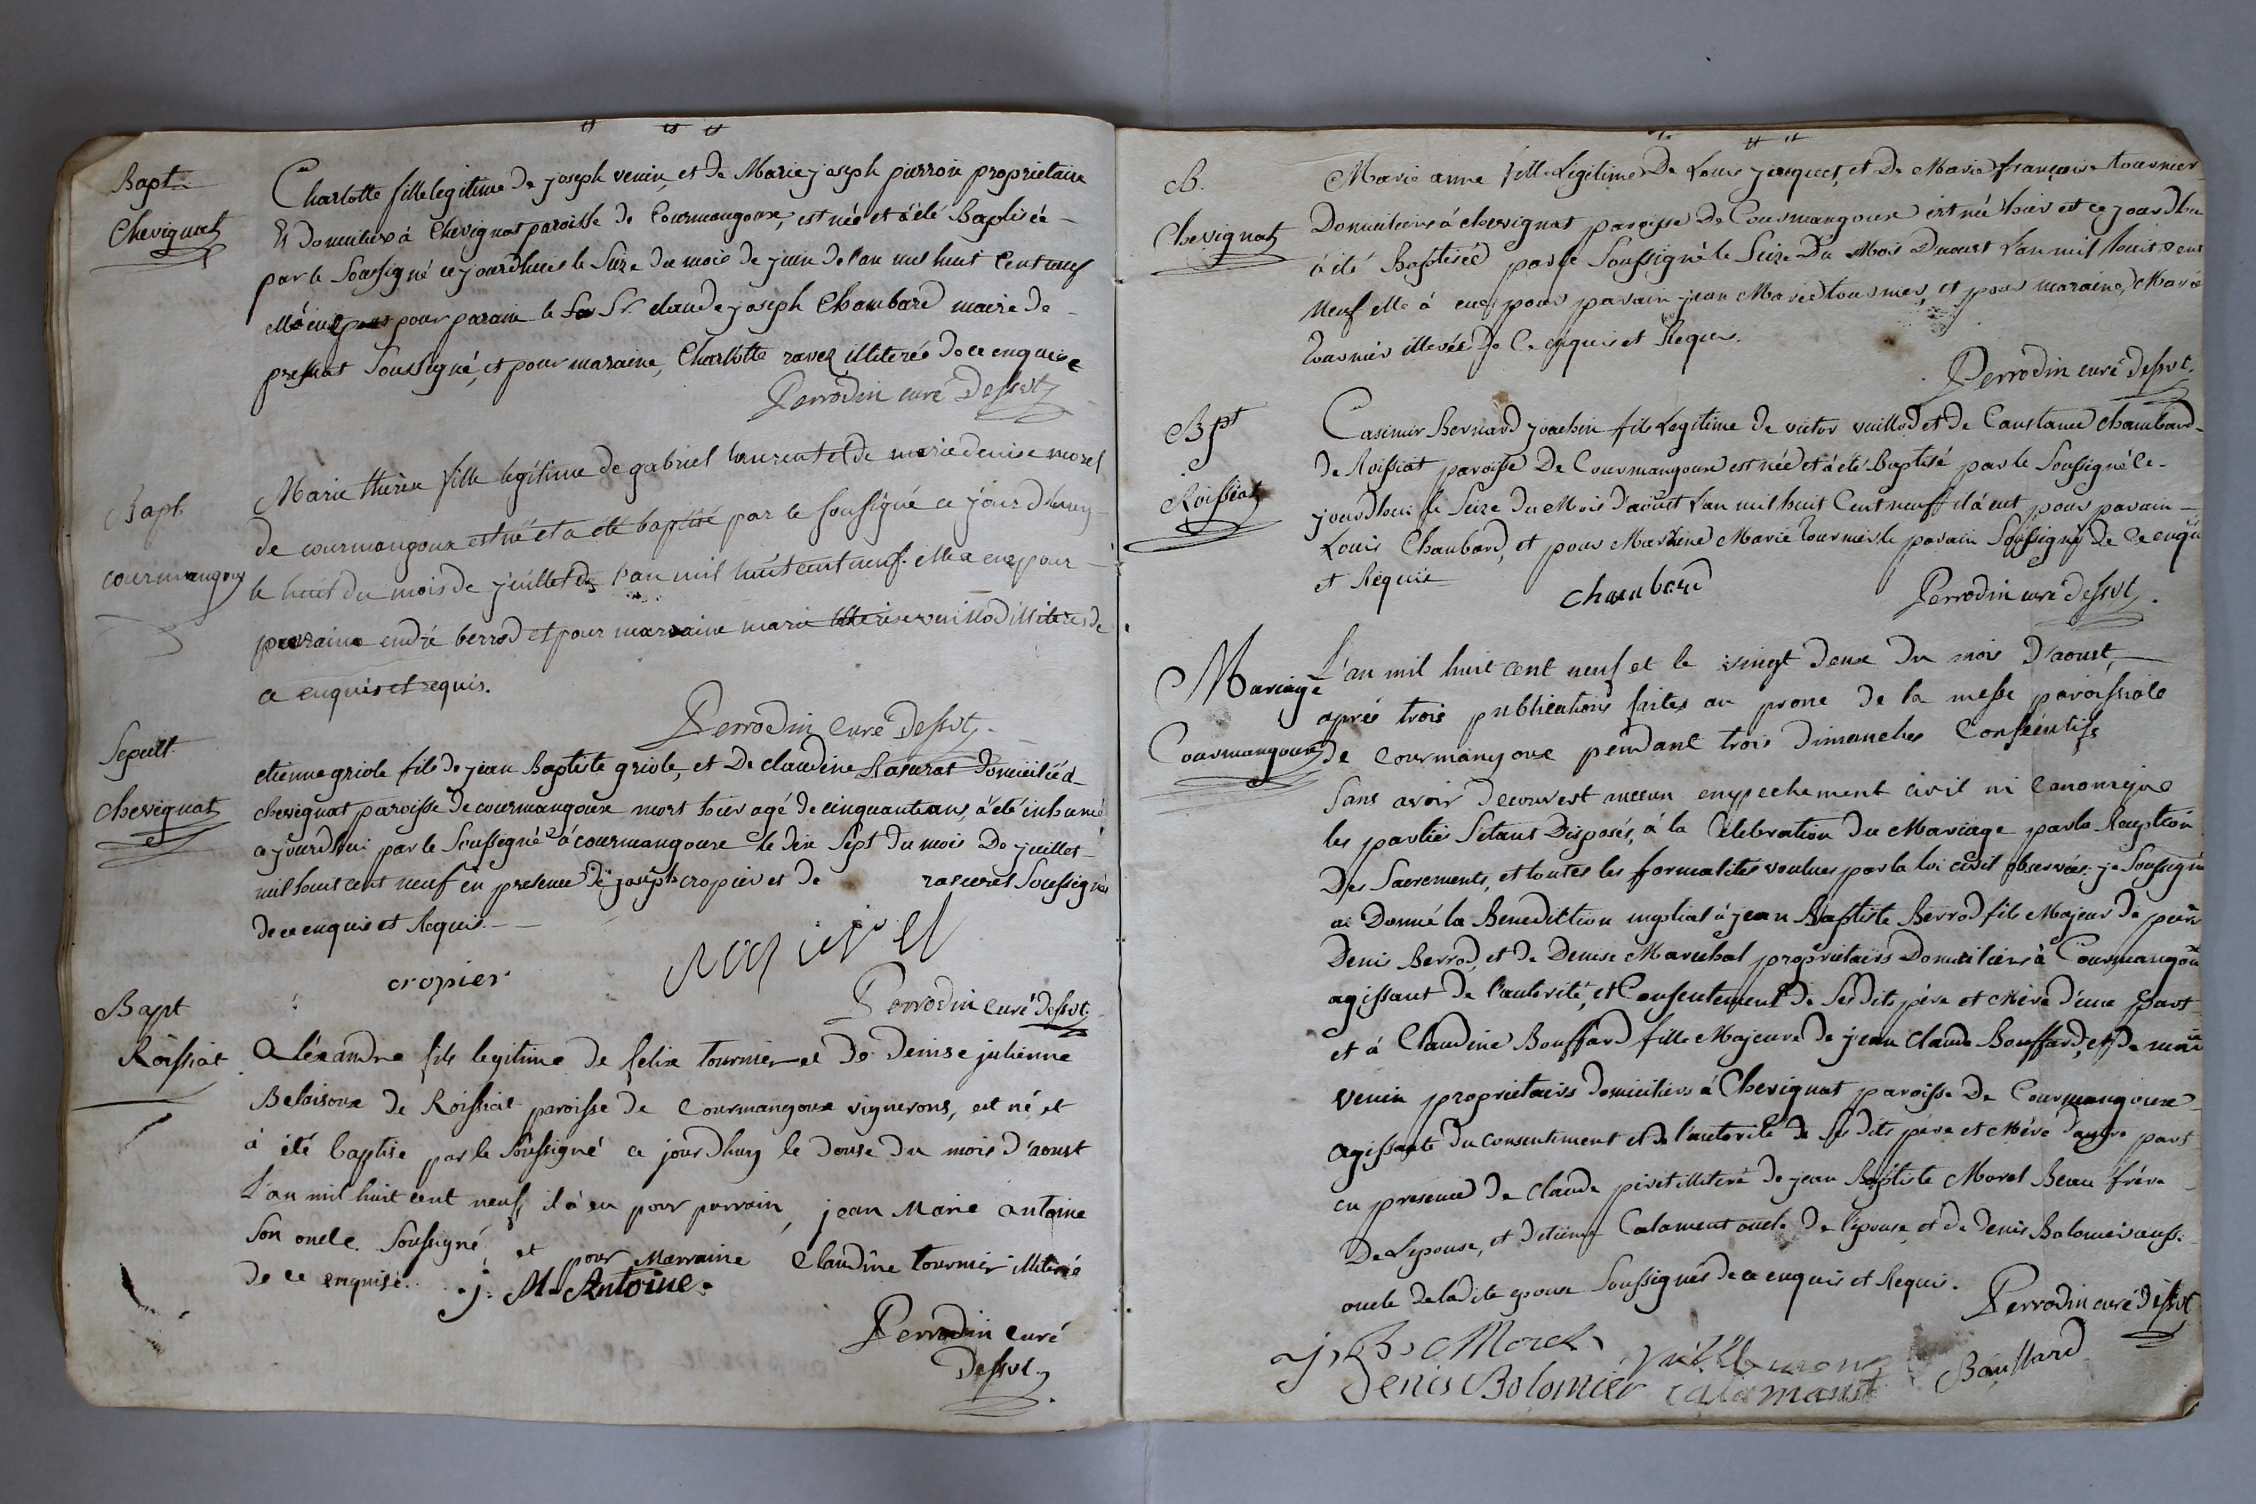 Bapt
Chevignat
Charlotte fille legitime de joseph venin, et de Marie joseph pierron proprietaire
Et domiciliés à Chevignat paroisse de Courmangoux, est née et à été Baptisée
par le Soussigné ce jourdhuis le Size du mois de juin de l'an mil huit Cent neuf
elle à eue pour parain le Sr. claude joseph Chambard maire de
pressiat Soussigné, et pour maraine, Charlotte ravet illiterée de ce enquise
Perrodin curé Dessvt
Bapt
courmangoux
Marie thérèse fille legitime de gabriel laurent et de marie denise morel
de courmangoux est né et a été baptisé par le sousigné ce jour d'huy
le huit du mois de juillet de l'an mil huit cent neuf. elle a eue pour
paraine endré berrod et pour maraine marie vuillod illiterés de
ce enquis et requis.
Perrodin Curé Dessvt
Sepult
chevignat
etienne griole fils de jean Baptiste griole, et De claudine Rasurat domicilié à
chevignat paroisse de courmangoux mort hier agé de cinquante ans, à été inhumé
ce jourdhui par le Soussigné à courmangoux le dix Sept du mois De juillet
mil huit cent neuf en presence de joseph cropier et de rasurel Soussignés
de ce enquis et Requis
cropier
Perrodin Curé dessvt
Bapt
Roissiat
Aléxandre fils legitime de felix tournier et de Denise julienne
Beloisoux de Roissiat paroisse de Courmangoux vignerons, est né et
à été baptise par le Soussigné ce jourdhuy le douse du mois d'aoust
L'an mil huit cent neuf, il à eu pour parrain, jean Marie Antoine
Son oncle Soussigné, et pour Marraine Claudine tournier illiteré
de ce enquise.
j. M. Antoine.
Perrodin curé
Dessvt
B.
Chevignat
Marie anne fille Legitime De Louis jacquet, et De Marie françoise tournier
Domiciliers à chevignat paroisse De Courmangoux est né hier et ce jourdhui
à été Baptiséé par le Soussigné le Seize Du Mois Daoust L'an mil huit Cent
Neuf elle à eue pour parain jean Marie tournier, et pour maraine, Marie
tournier illeréé De Ce enquis et Requis.
Perrodin curé dessvt.
Bpt
Roissiat
Casimir Bernard joachin fils Legitime de victor vuillod et de Constance chambard
de Roissiat paroisse De Courmangoux est née et à été Baptisé par le Soussigné Ce
jourdhui le Seize du Mois d'aoust L'an mil huit Cent neuf il à eut pour parain
Louis Chambard, et pour Marine Marie tournier le parain Soussigné De Ce enquis
et Requis
chambard
Perrodin curé dessvt
Mariage
Courmangoux
L'an mil huit cent neuf et le vingt deux du mois D'aoust,
après trois publications faites au prone de la messe paroissiale
de Courmangoux pendant trois dimanches Conséentifs
Sans avoir decouvert aucun empechement civil ni Canonique
les parties Sétant Disposés, à la Célébration du Mariage par la Reception
Des Sacrements, et toutes les formalités voulues par la loi civil observées. je Soussigné
ai Donné la Benediction nuptial à jean Baptiste Berrod fils Majeur de pierre
Denis Berrod, et de Denise Marechal proprietairs Domiciliers à Courmangoux
agissant de l'autorité, et Consentement de Ses dits pére et Mére d'une part
et à Claudine Bouffard fille Majeure de jean Claude Bouffard, et de marie
venin proprietairs domiciliers à Chevignat paroisse De Courmangoux
Agissante du Consentiment et de l'autorité de Ses dits pére et Mére d'autre part
en presence de Claude pivet illiteré de jean Baptiste Morel Beau frére
De L'epouse, et d'etienne Calamant oncle De l'epouse, et de Denis Bolomier aussi
oncle de ladite epouse Soussignés de ce enquis et Requis.
Perrodin curé dessvt
j. B. Morel
Denis Bolomier
calamant
Bouffard